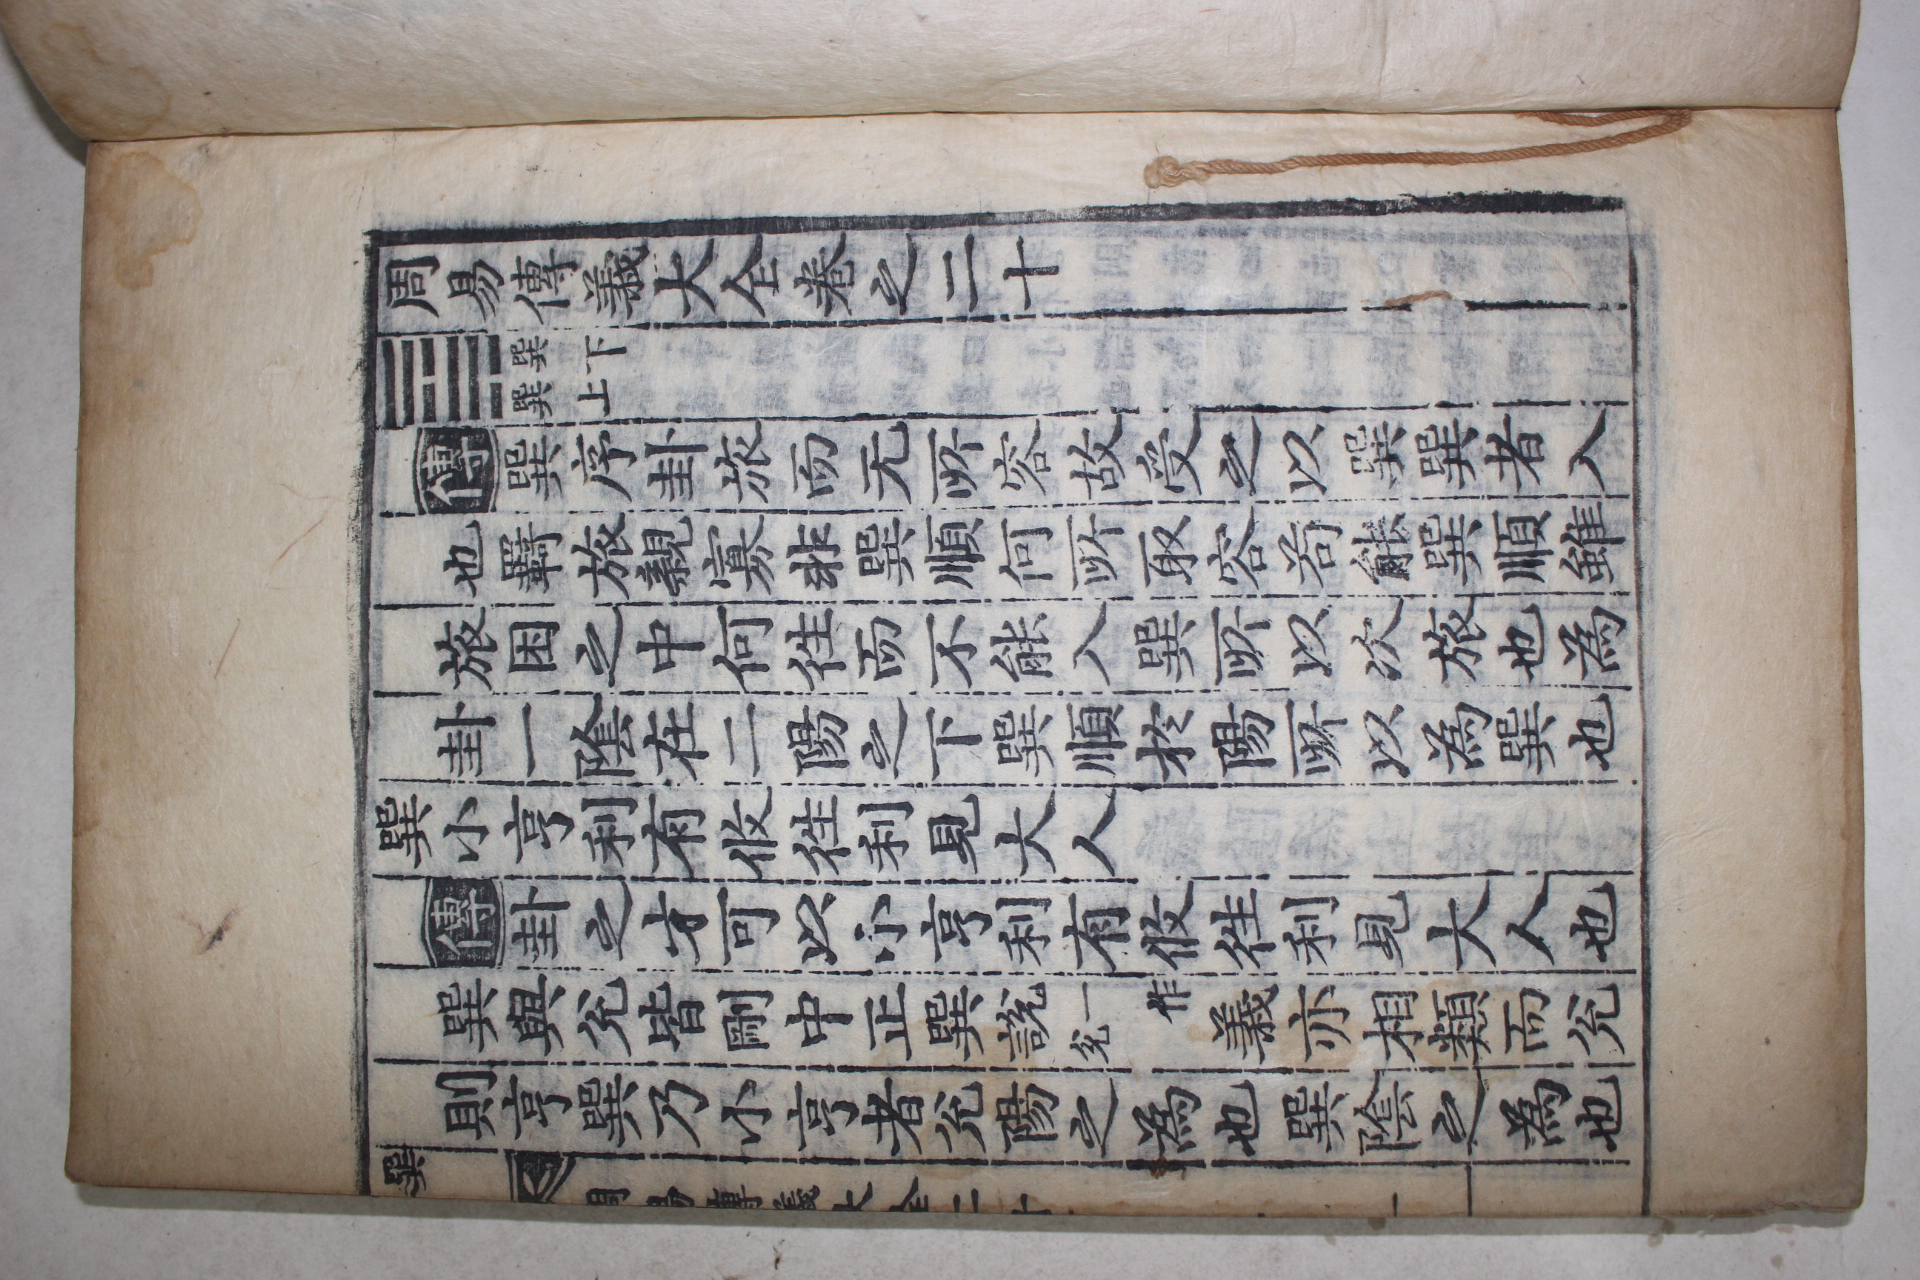 周易傳義大全卷之二十
巽下
巽上
傳巽序卦旅而无所容故受之以巽巽者入
也羇旅親寡非巽順何所取容苟能巽順雖
旅困之中何徃而不能入巽所以次旅也為
卦一陰在二陽之下巽順於陽所以為巽也
巽小亨利有攸徃利見大人
傳卦之才可以小亨利有攸徃利見大人也
巽與兊皆剛中正巽說一作兊義亦相類而兊
則亨巽乃小亨者兊陽之為也巽陰之為也
巽
周易傳義大全二十
一